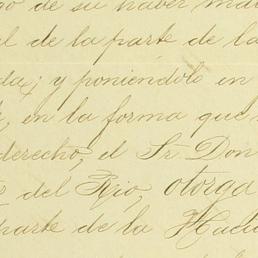 go de su haber mat
l de la parte de la
da; y poniéndolo en
, en la forma que
derecho, el Sr Don
del Rio, otorga
parte de la Hacie